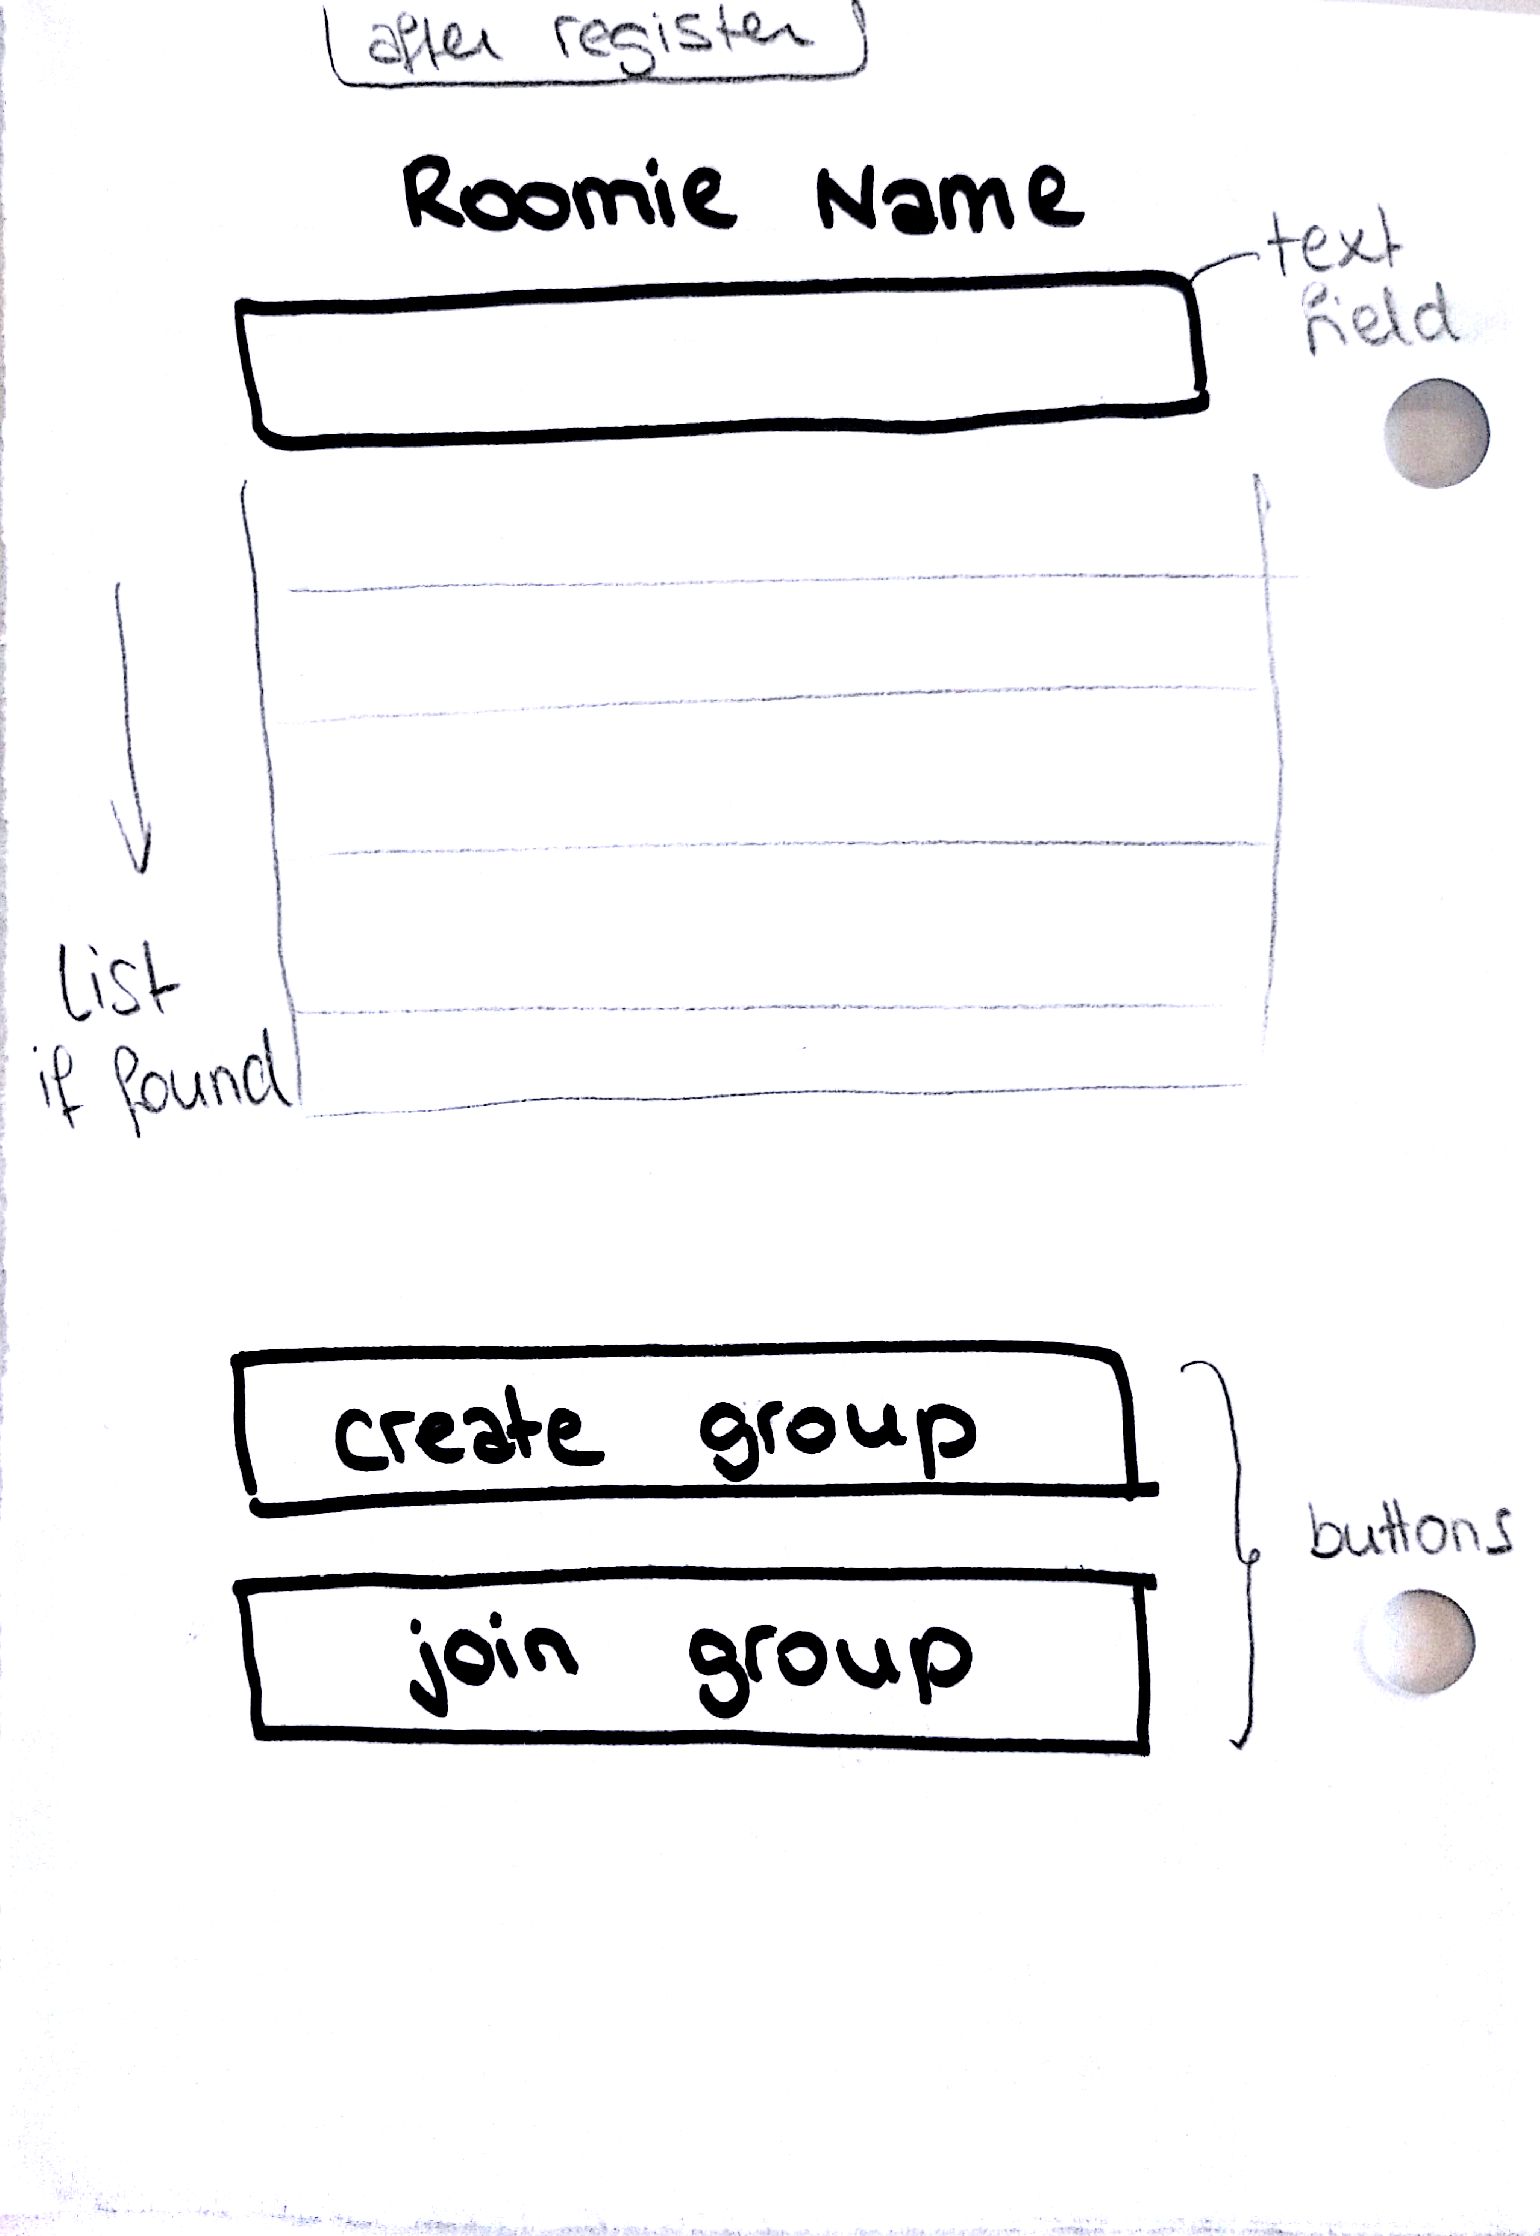 after register
Roomie Name
text
field
list
if found
create group
join group
buttons